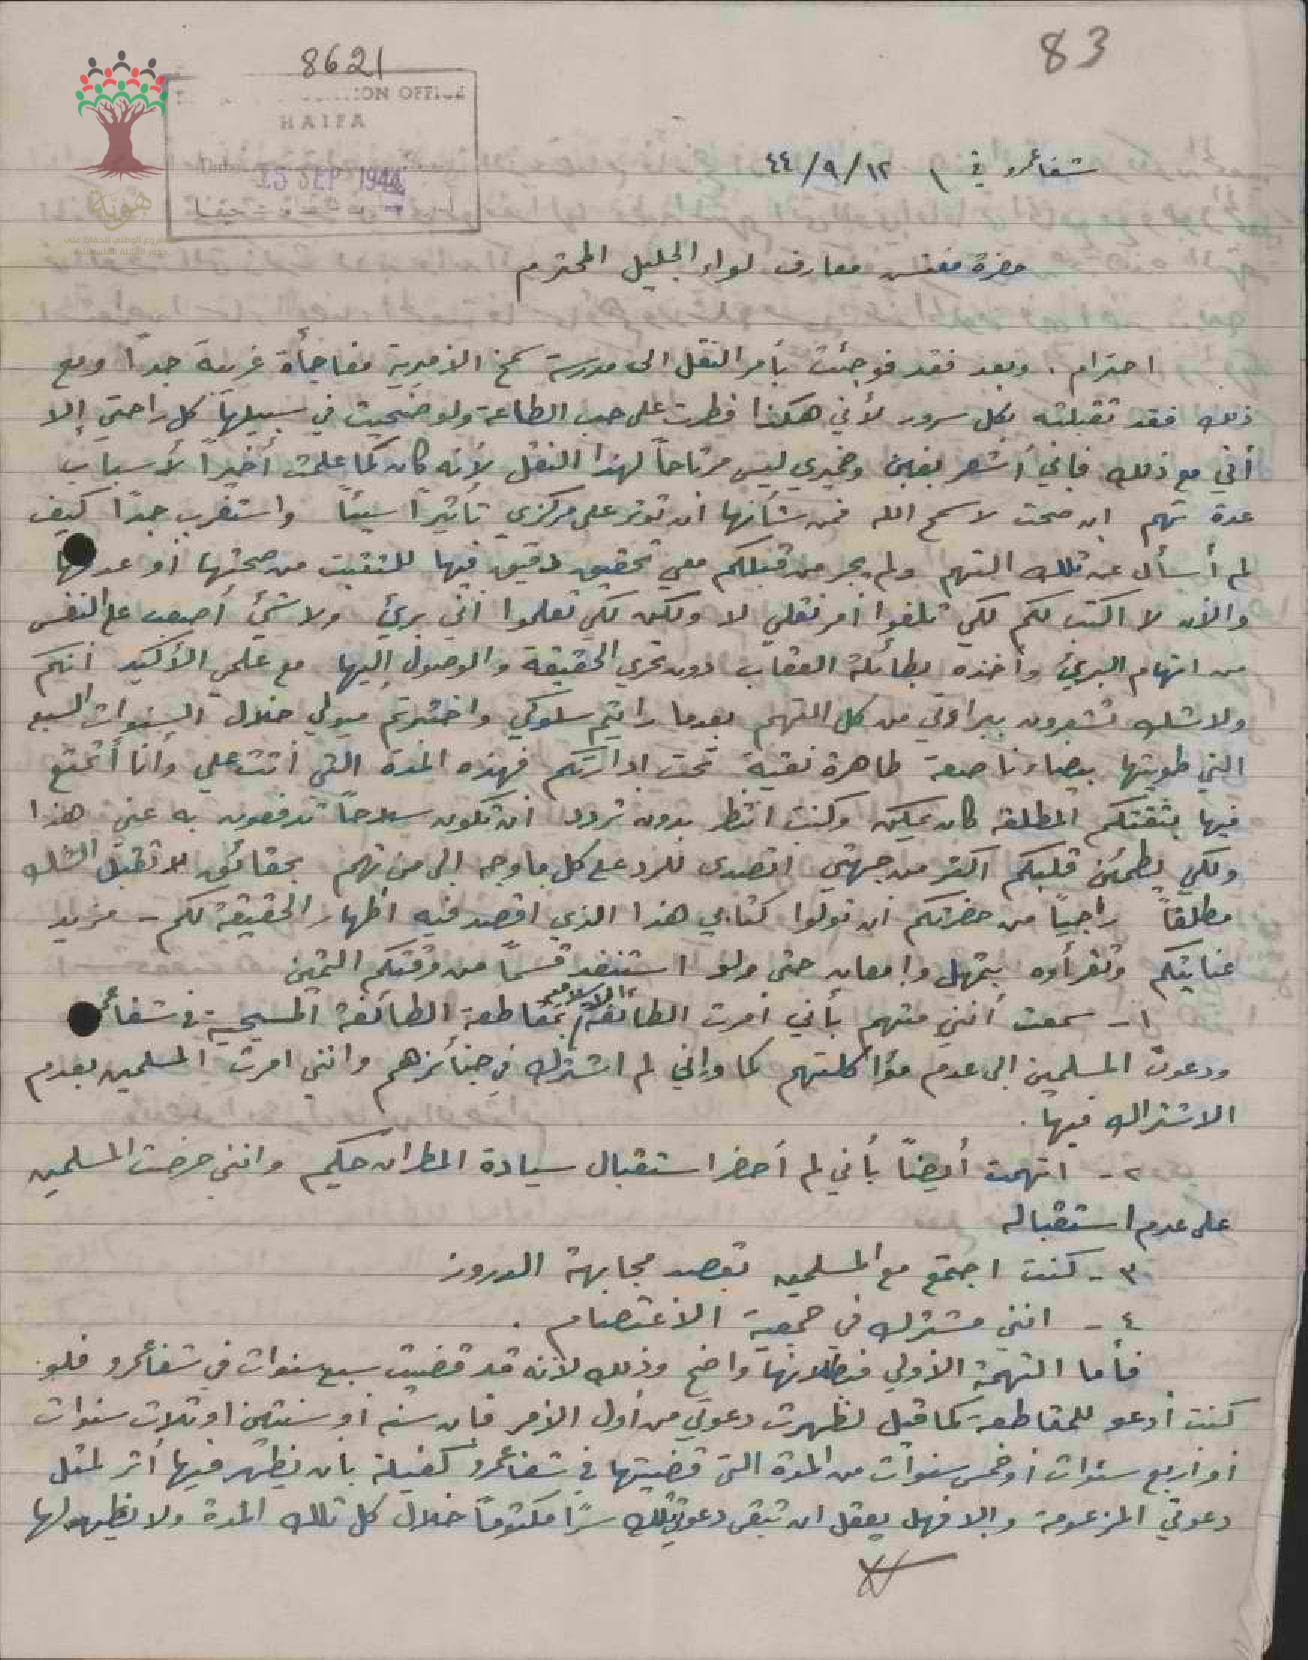 83
8621
ION OFFICE
HAIFA
15 SEP 1944
هوية
شفاعمرو في ١٢/٩/٤٤
حضرة مفتش معارف لواء الجليل المحترم
احترام . وبعد فقد فوجئت بأمر النقل الى مدرسة سمخ الاميرية مفاجأة غريبة جداً ومع
ذلك فقد تقبلته بكل سرور لأني هكذا فطرت على حب الطاعة ولو ضحيت في سبيلها كل راحتي إلا
أني مع ذلك فاني أشعر بغبن وضميري ليس مرتاحاً لهذا النقل لأنه كان كما علمت أخيراً لأسباب
عدة تهم ان صحت لا سمح الله فمن شأنها ان تؤثر على مركزي تأثيراً سيئاً واستغرب جداً كيف
لم أسأل عن تلك التهم ولم يجر من قبلكم معي تحقيق دقيق فيها للتثبت من صحتها أو عدمها
والآن لا اكتب لكم لكي تلغوا أمر نقلي لا ولكن لكي تعلموا أني بريئ ولا شيئ أصعب على النفس
من اتهام البريئ وأخذه بطائلة العقاب دون تحري الحقيقة والوصول إليها مع علمي الأكيد أنكم
ولا شك تشعرون ببراءتي من كل التهم بعدما رأيتم سلوكي واختبرتم ميولي خلال السنوات السبع
التي طويتها بيضاء ناصعة طاهرة نقية تحت ادارتكم فهذه المدة التي أتت علي وأنا أتمتع
فيها بثقتكم المطلقة كان يمكن وكنت انتظر بدون تردد ان تكون سلاحاً تدفعون به عني هذا
ولكي يطمئن قلبكم اكثر من جهتي اتصدى للرد على كل ما وجه إلي من تهم بحقائق لا تقبل الشك
مطلقاً راجياً من حضرتكم ان تولوا كتابي هذا الذي اقصد فيه اظهار الحقيقة لكم - مزيد
عنايتكم وتقرأوه بتمهل وإمعان حتى ولو استنفد قسماً من وقتكم الثمين
١- سمعت أنني متهم بأني أمرت الطائفة الاسلامية بمقاطعة الطائفة المسيحية في شفاعمرو
ودعوت المسلمين الى عدم مؤاكلتهم كما واني لم اشترك في جنائزهم وانني امرت المسلمين بعدم
الاشتراك فيها .
٢- اتهمت أيضاً بأني لم أحضر استقبال سيادة المطران حكيم وانني حرضت المسلمين
على عدم استقباله
٣- كنت اجتمع مع المسلمين بقصد مجابهة الدروز
٤- انني مشترك في جمعية الاعتصام .
فأما التهمة الأولى فبطلانها واضح وذلك لأنه قد قضيت سبع سنوات في شفاعمرو فلو
كنت أدعو للمقاطعة كما قيل لظهرت دعوتي من أول الأمر فان سنة أو سنتين او ثلاث سنوات
أو اربع سنوات أو خمس سنوات من المدة التي قضيتها في شفاعمرو كفيلة بان يظهر فيها أثر لمثل
دعوتي المزعومة والا فهل يعقل ان تبقى دعوتي تلك سرًا مكتوماً خلال كل تلك المدة ولا يظهر لها